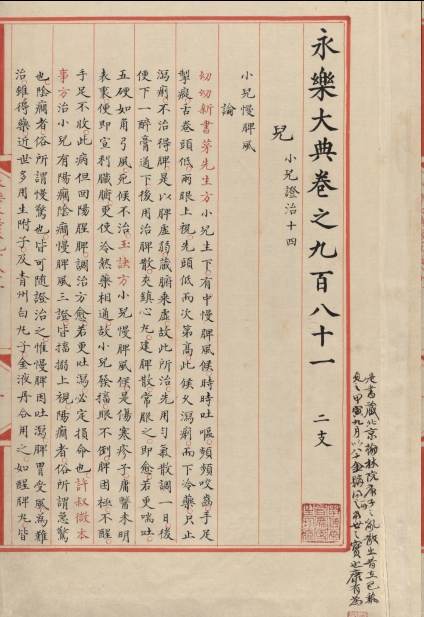 是書藏北京翰林院庚子之亂散出昔在巴黎
見之甲寅九月以金購世之寶也康有為
永樂大典卷之九百八十一 二支
兒 小兒證治十四
小兒慢脾風
論
幼幼新書茅先生方小兒生下有中慢脾風候時時吐嘔頻頻咬齒手足
掣瘲舌卷頭低兩眼上視先頭低而次第高此候失瀉痢而下冷藥只止
瀉痢不治得脾是以脾虛弱藏腑乘虛故此所治先用勻氣散調一日後
便下一醉膏通下後用治脾散夾鎮心丸建脾散常服之即愈若更喘吐
五硬如角弓風死候不治玉訣方小兒慢脾風候是傷寒疹子膚瞥未明
表裏便即宣利臟腑更使冷熱藥相通故小兒發搐眼不倒脾困極不醒
手足不收此病但回陽醒脾調治方愈若更吐瀉必定損命也許叔微本
事方治小兒有陽癇陰癇慢脾風三證皆搐搦上視陽癇者俗所謂急驚
也陰癇者俗所謂慢驚也皆可隨證治之惟慢脾因吐瀉脾胃受風為難
治雖得藥近世多用生附子及青州白丸子金液丹合用之如醒脾丸皆